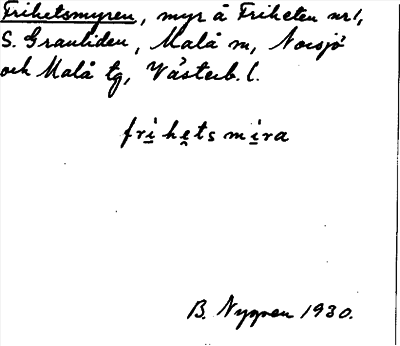 Frihetsmyren, myr å Friheten nr 1,
S. Granliden, Malå sn, Norsjö
och Malå tg, Västerb. l.
fri̲he̲ts mi̲ra
B. Nygren 1930.